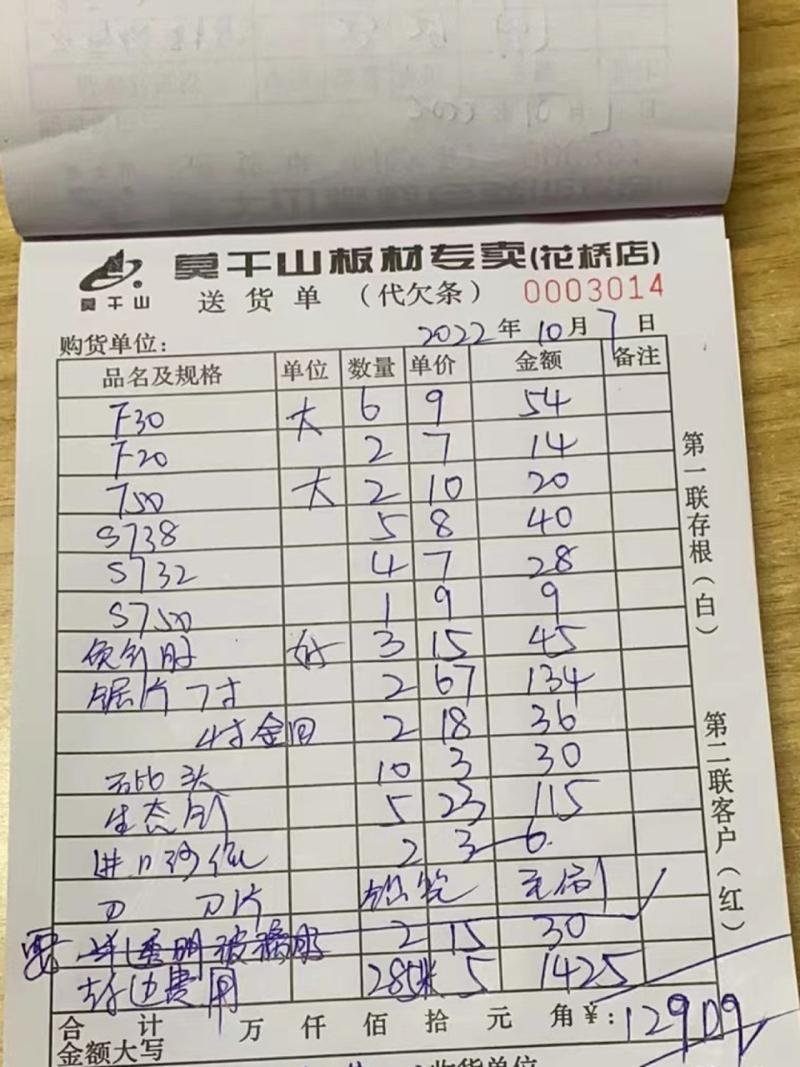 莫干山板材专卖(花桥店)
莫干山
送货单 (代欠条) 0003014
购货单位: 2022年10月7日
品名及规格 单位 数量 单价 金额 备注
F30 大 6 9 54
F20 2 7 14
T50 大 2 10 20
S738 5 8 40
S732 4 7 28
S750 1 9 9
3 15 45
锯片 7寸 2 67 134
4寸 2 18 36
头 10 3 30
生态钉 5 23 115
进口 2 3 6
刀 刀片 铅笔
透明 2 15 30
封边费用 285米 5 1425
合计 万 仟 佰 拾 元 角 ¥:
金额大写
收货单位
第一联存根(白)
第二联客户(红)